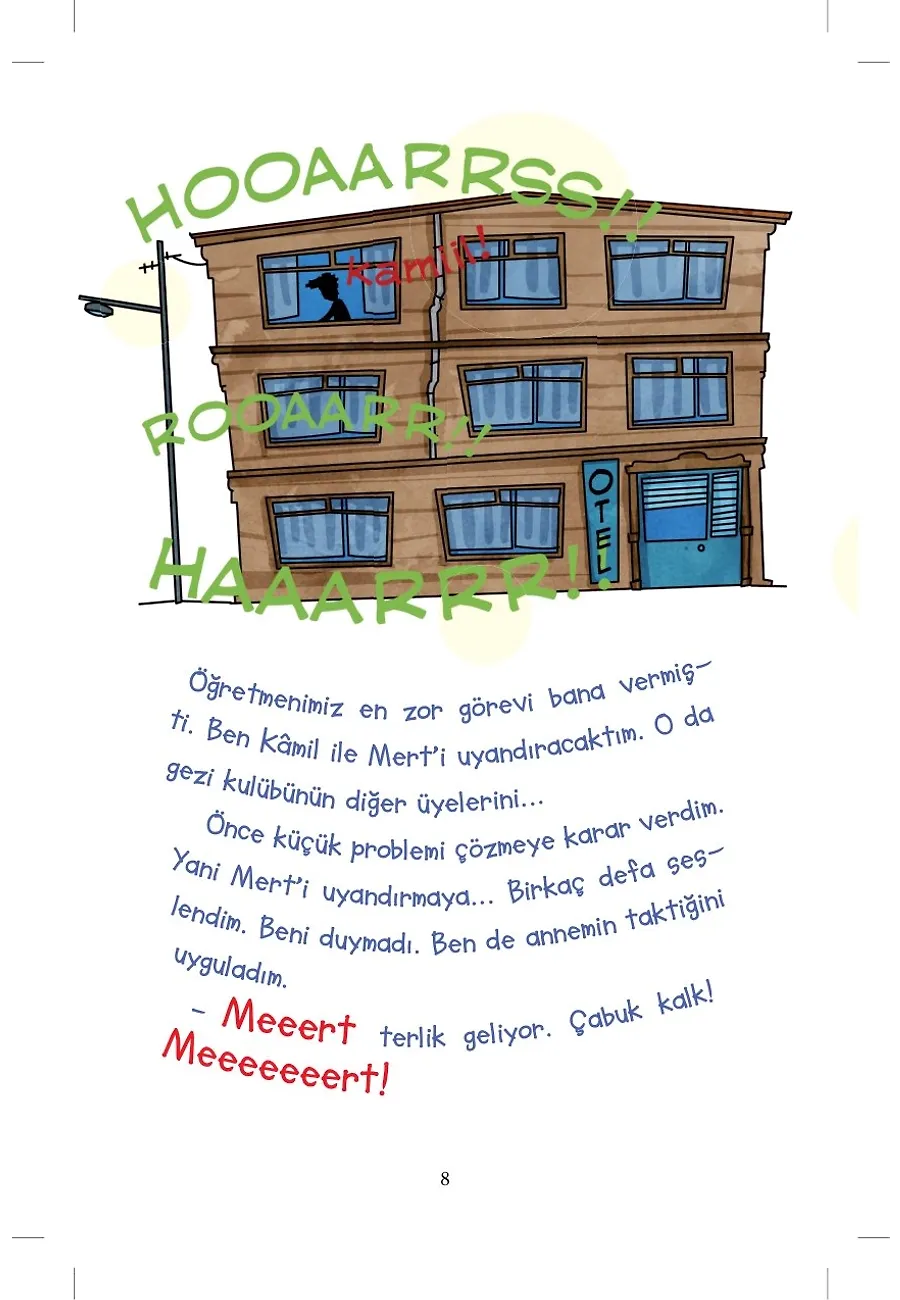 HOOAARRSS!!
kamiil!
ROOAARR!!
OTEL
HAAAARRRR!!
Öğretmenimiz en zor görevi bana vermiş-
ti. Ben Kâmil ile Mert'i uyandıracaktım. O da
gezi kulübünün diğer üyelerini...
Önce küçük problemi çözmeye karar verdim.
Yani Mert'i uyandırmaya... Birkaç defa ses-
lendim. Beni duymadı. Ben de annemin taktiğini
uyguladım.
- Meeert terlik geliyor. Çabuk kalk!
Meeeeeeert!
8